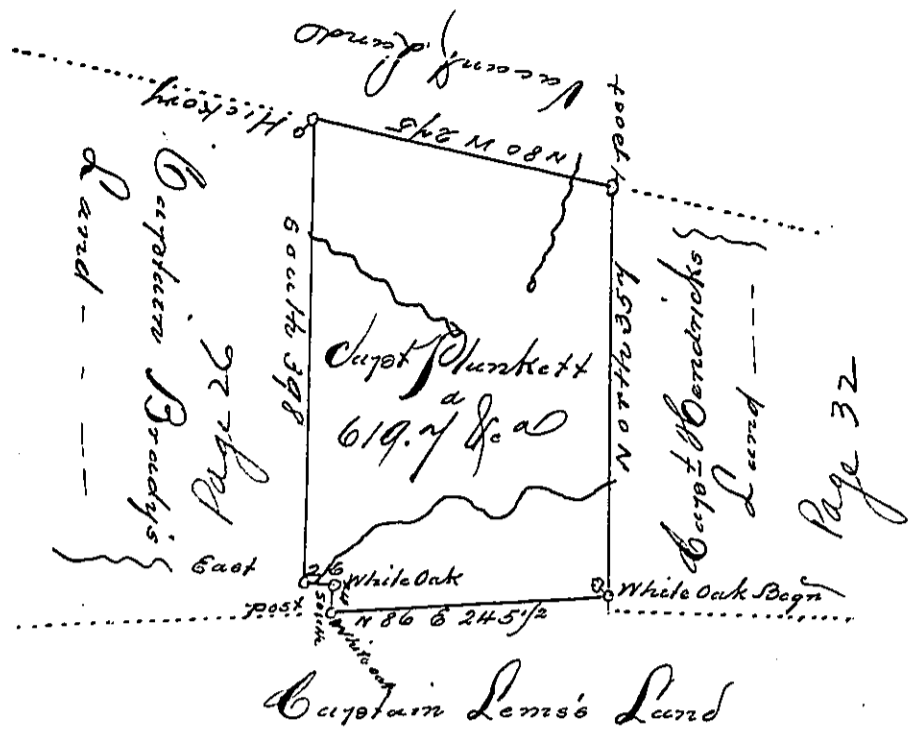 Vacant Lands
Hickory
N 80 W 275
Post
Captain Brady's
Land
Page 32
South 398
Capt Plunkett
a
619.7 &c a
North 357
Capt Hendricks
Land
Page 32
East
26
White Oak
post
South
White oak
N 86 E 245 1/2
White Oak Begn
Captain Lems's Land